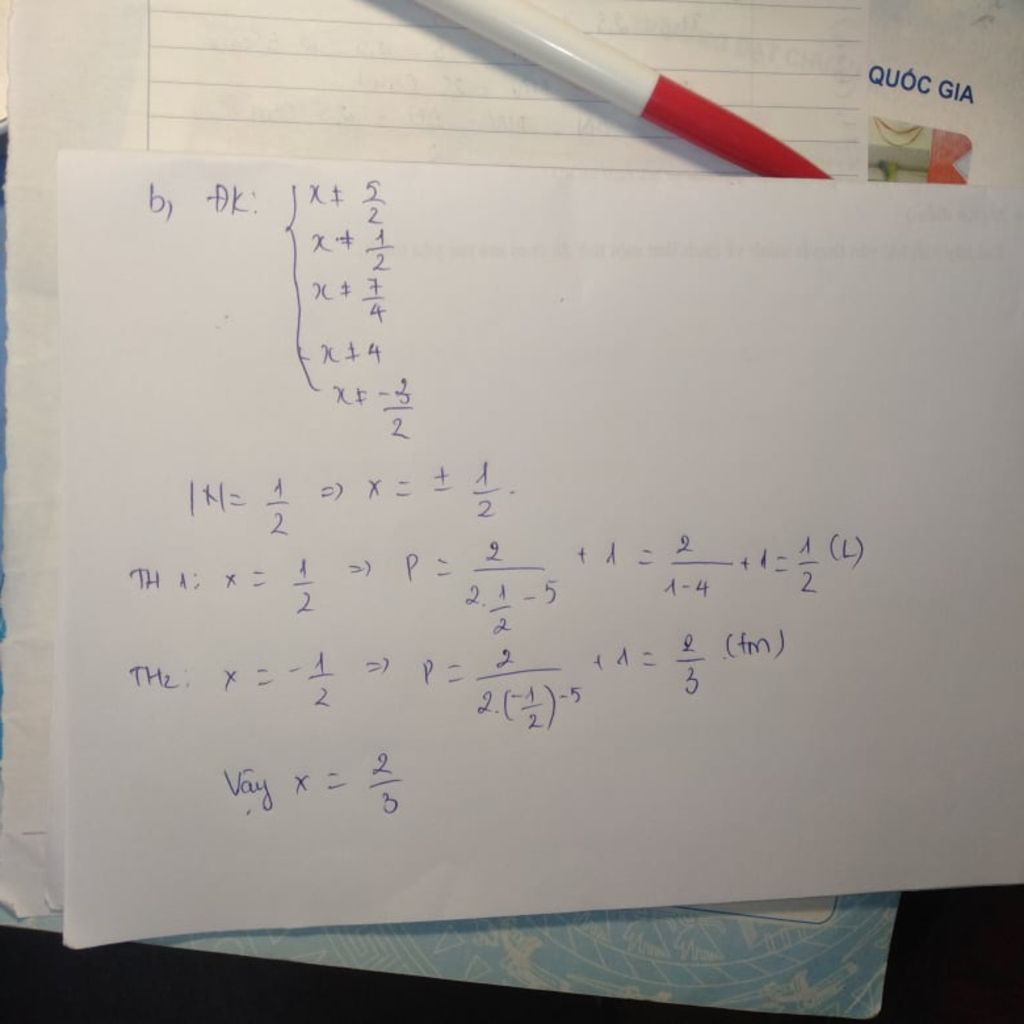 QUỐC GIA
b, ĐK: { x ≠ 5/2
x ≠ 1/2
x ≠ 7/4
x ≠ 4
x ≠ -3/2
|x| = 1/2 => x = ± 1/2.
TH1: x = 1/2 => P = 2/(2.1/2 - 5) + 1 = 2/(1-4) + 1 = 1/2 (L)
TH2: x = -1/2 => P = 2/(2.(-1/2)-5) + 1 = 2/3 (tm)
Vậy x = 2/3